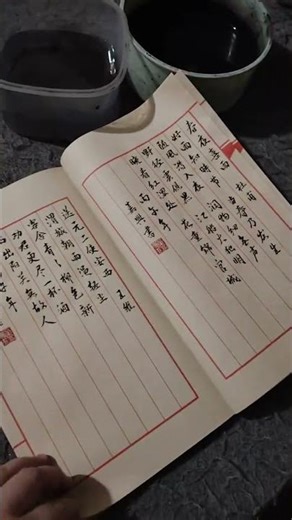 春夜喜雨 杜甫
好雨知时节 当春乃发生
随风潜入夜 润物细无声
野径云俱黑 江船火独明
晓看红湿处 花重锦官城
送元二使安西 王维
渭城朝雨浥轻尘
客舍青青柳色新
劝君更尽一杯酒
西出阳关无故人